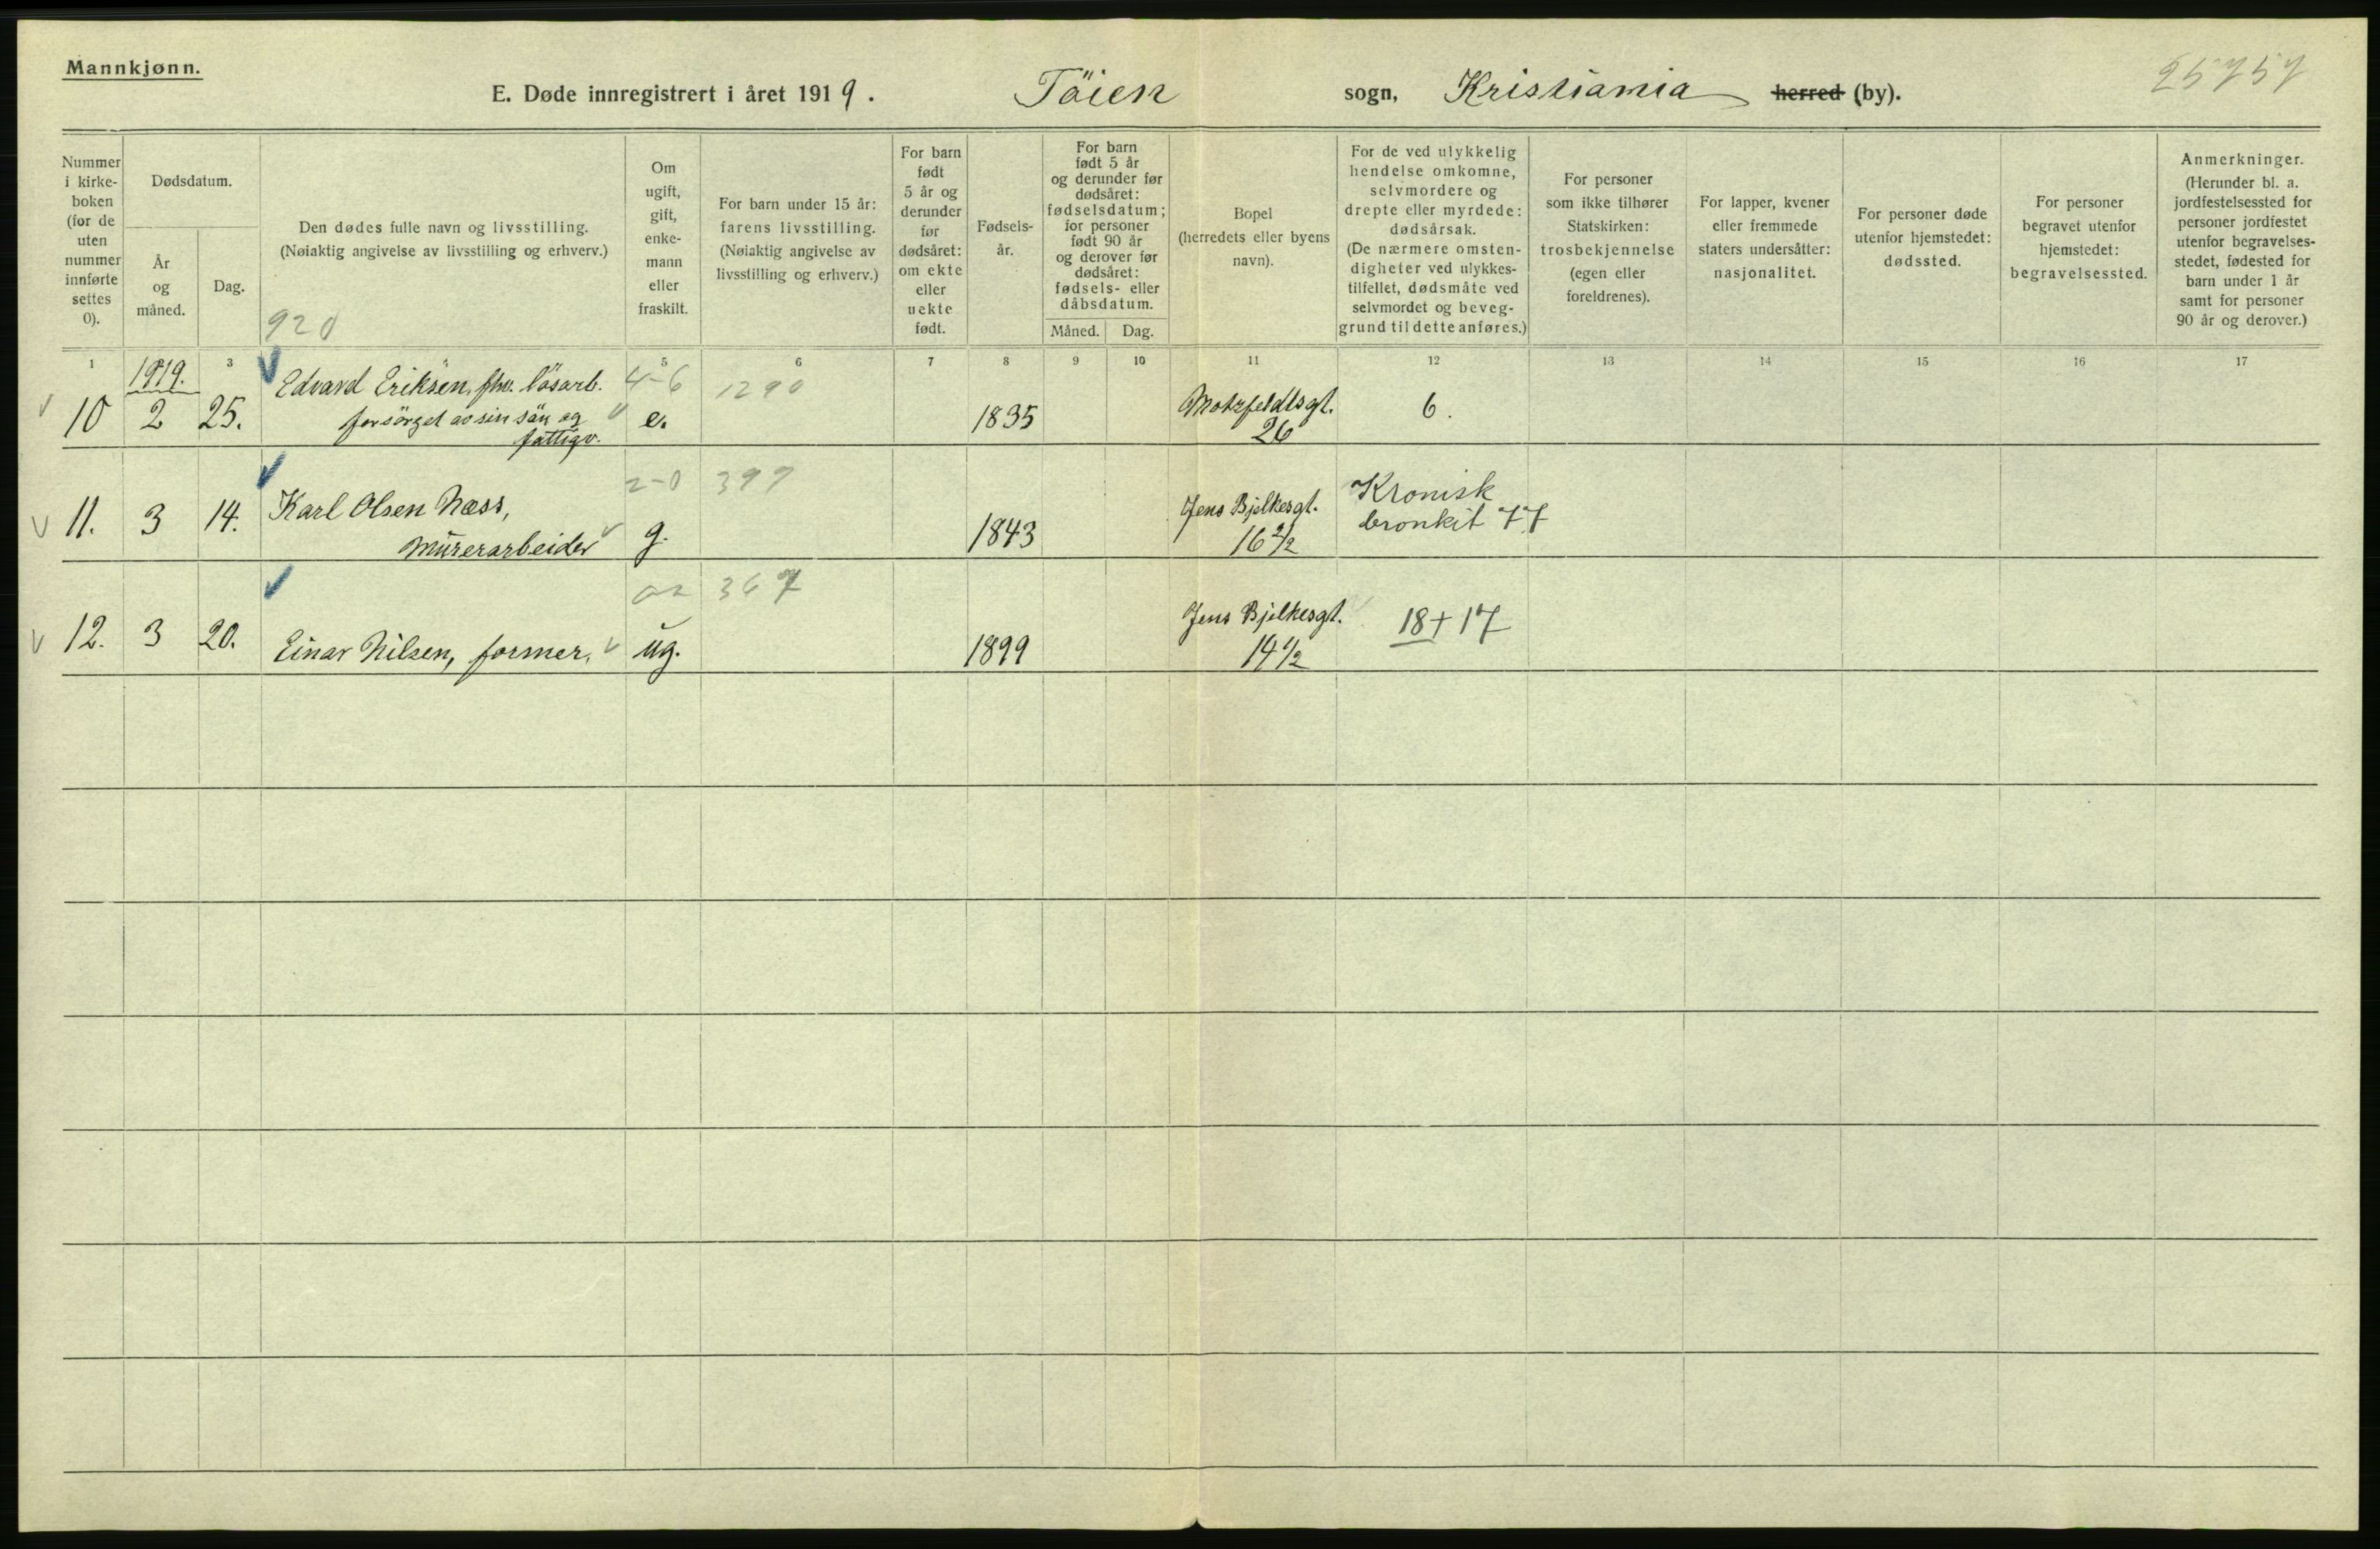 Mannkjønn.
E. Døde innregistrert i året 1919. Töien sogn, Kristiania herred (by).
25757
Nummer i kirke- boken (for de uten nummer innførte settes 0).
Dødsdatum.
År og måned.
Dag.
Den dødes fulle navn og livsstilling.
(Nøiaktig angivelse av livsstilling og erhverv.)
920
Om ugift, gift, enke- mann eller fraskilt.
For barn under 15 år: farens livsstilling.
(Nøiaktig angivelse av livsstilling og erhverv.)
For barn født 5 år og derunder før dødsåret: om ekte eller uekte født.
Fødsels- år.
For barn født 5 år og derunder før dødsåret: fødselsdatum; for personer født 90 år og derover før dødsåret: fødsels- eller dåbsdatum.
Måned.
Dag.
Bopel (herredets eller byens navn).
For de ved ulykkelig hendelse omkomne, selvmordere og drepte eller myrdede: dødsårsak.
(De nærmere omsten- digheter ved ulykkes- tilfellet, dødsmåte ved selvmordet og beveg- grund til dette anføres.)
For personer som ikke tilhører Statskirken: trosbekjennelse (egen eller foreldrenes).
For lapper, kvener eller fremmede staters undersåtter: nasjonalitet.
For personer døde utenfor hjemstedet: dødssted.
For personer begravet utenfor hjemstedet: begravelsessted.
Anmerkninger.
(Herunder bl. a. jordfestelsessted for personer jordfestet utenfor begravelses- stedet, fødested for barn under 1 år samt for personer 90 år og derover.)
1 3 5 6 7 8 9 10 11 12 13 14 15 16 17
1919.
Edvard Eriksen, fhv. lösarb. 4-6 1290
10 2 25. forsörget av sin sön og e. 1835 Motzfeldtsgt. 6.
fattigv. 26
2-0 399
11. 3 14. Karl Olsen Næss, Jens Bjelkesgt. Kronisk
murerarbeider g. 1843 16 2/2 bronkit 77
367
12. 3 20. Einar Nilsen, former, ug. 1899 Jens Bjelkesgt. 18+17
14 1/2